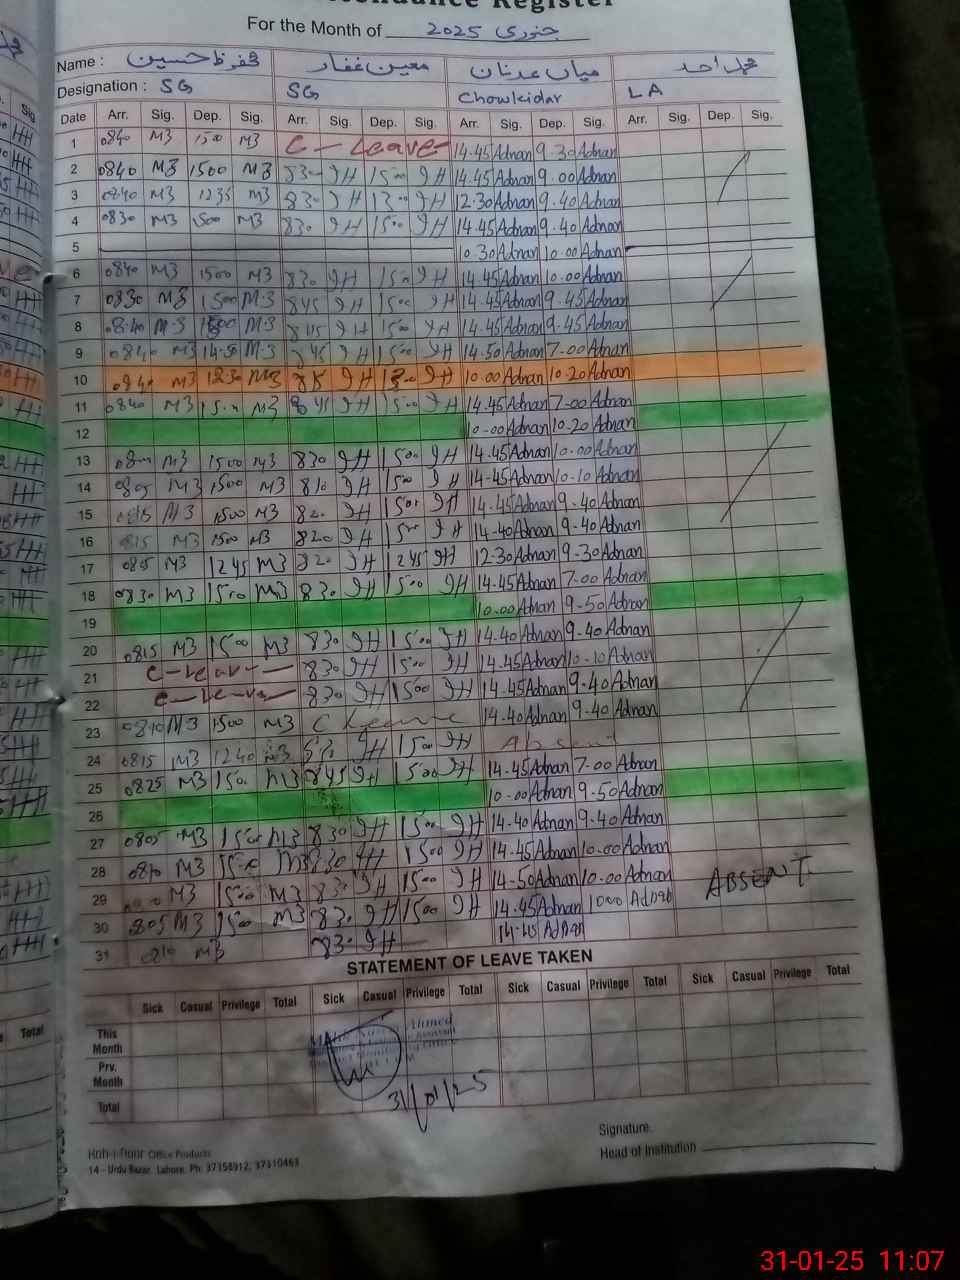 Attendance Register
For the Month of جنوری 2025
Name : محفوظ حسین معین غفار میاں عدنان محمد احمد
Designation : SG SG Chowkidar LA
Date Arr. Sig. Dep. Sig. Arr. Sig. Dep. Sig. Arr. Sig. Dep. Sig. Arr. Sig. Dep. Sig.
1 0840 M3 1500 M3 C-Leave 14.45 Adnan 9.30 Adnan
2 0840 M3 1500 M3 830 JH 1500 JH 14.45 Adnan 9.00 Adnan
3 0840 M3 1235 M3 830 JH 1300 JH 12.30 Adnan 9.40 Adnan
4 0830 M3 1500 M3 830 JH 1500 JH 14.45 Adnan 9.40 Adnan
5 10.30 Adnan 10.00 Adnan
6 0840 M3 1500 M3 830 JH 1500 JH 14.45 Adnan 10.00 Adnan
7 0830 M3 1500 M3 845 JH 1500 JH 14.45 Adnan 9.45 Adnan
8 0840 M3 1500 M3 845 JH 1500 JH 14.45 Adnan 9.45 Adnan
9 0840 M3 14-50 M3 845 JH 1500 JH 14.50 Adnan 7-00 Adnan
10 0840 M3 1230 M3 JH JH 10.00 Adnan 10.20 Adnan
11 0840 M3 1500 M3 845 JH 1500 JH 14.45 Adnan 7-00 Adnan
12 10-00 Adnan 10.20 Adnan
13 0800 M3 1500 M3 830 JH 1500 JH 14.45 Adnan 10.00 Adnan
14 0805 M3 1500 M3 810 JH 1500 JH 14-45 Adnan 10-10 Adnan
15 0815 M3 1500 M3 820 JH 1500 JH 14.45 Adnan 9.40 Adnan
16 0815 M3 1500 M3 820 JH 1500 JH 14.40 Adnan 9.40 Adnan
17 0815 M3 1245 M3 820 JH 1245 JH 12.30 Adnan 9.30 Adnan
18 0830 M3 1500 M3 830 JH 1500 JH 14.45 Adnan 7.00 Adnan
19 10.00 Adnan 9-50 Adnan
20 0815 M3 1500 M3 830 JH 1500 JH 14.40 Adnan 9.40 Adnan
21 C-Leave 830 JH 1500 JH 14.45 Adnan 10-10 Adnan
22 C-Leave 830 JH 1500 JH 14.45 Adnan 9.40 Adnan
23 0810 M3 1500 M3 C Leave 14.40 Adnan 9.40 Adnan
24 0815 M3 1240 M3 JH 1500 JH Absent
25 0825 M3 1500 M3 845 JH 1500 JH 14.45 Adnan 7-00 Adnan
26 10.00 Adnan 9.50 Adnan
27 0805 M3 1500 M3 830 JH 1500 JH 14.40 Adnan 9.40 Adnan
28 0810 M3 1500 M3 830 JH 1500 JH 14.45 Adnan 10.00 Adnan
29 M3 1500 M3 830 JH 1500 JH 14-50 Adnan 10.00 Adnan ABSENT.
30 805 M3 1500 M3 830 JH 1500 JH 14.45 Adnan 1000 Adnan
31 0810 M3 830 JH 14.45 Adnan
STATEMENT OF LEAVE TAKEN
Sick Casual Privilege Total Sick Casual Privilege Total Sick Casual Privilege Total Sick Casual Privilege Total
This Month
Prv. Month
Total
Ahmed
31/01/25
Signature.
Head of Institution
Koh-i-Noor Office Products
14 - Urdu Bazar, Lahore. Ph: 37358912, 37310463
31-01-25 11:07